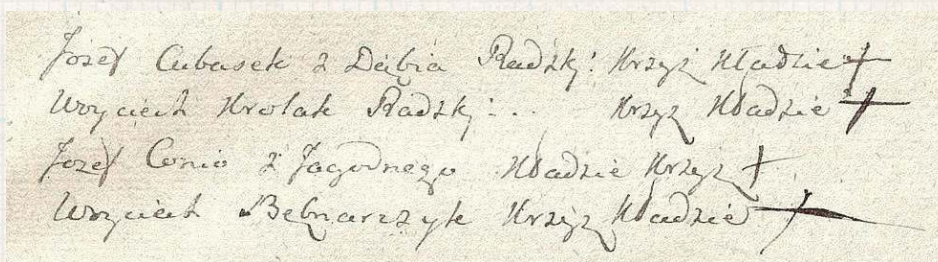 Jozef Cubasek z Dąbia Radzkj: Krzyż Kładzie +
Woyciech Krolak Radzkj: .. Krzyż Kładzie +
Jozef Conio z Jagodnego Kładzie Krzyż +
Woyciech Bednarczyk Krzyż Kładzie +